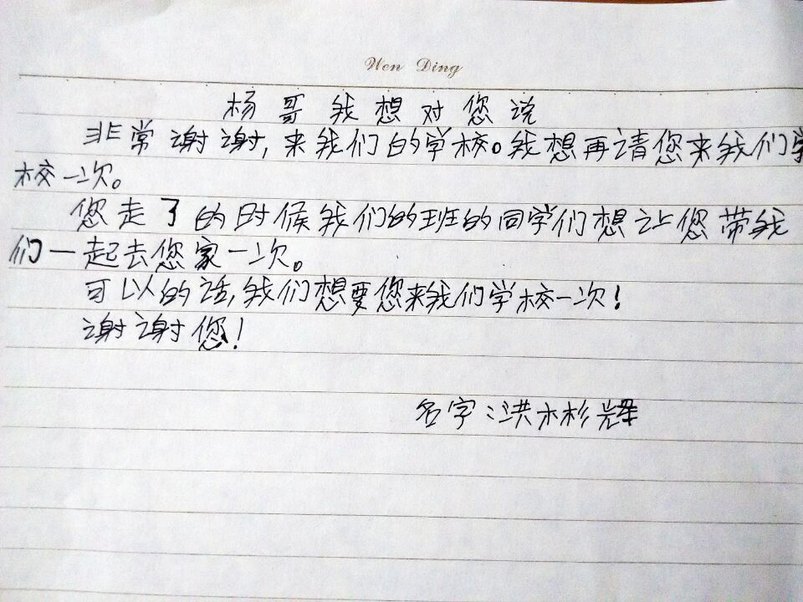 Wen Ding
杨哥我想对您说
非常谢谢,来我们的学校。我想再请您来我们学
校一次。
您走了的时候我们的班的同学们想让您带我
们一起去您家一次。
可以的话,我们想要您来我们学校一次!
谢谢您!
名字:洪木杉辉